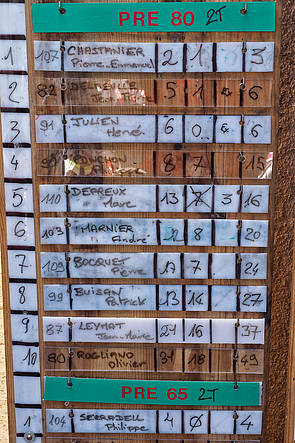 PRE 80 2T
1 107 CHASTANIER Pierre-Emmanuel 2 1 3
2 82 5 1 & 6
3 91 JULIEN Hervé 6 0 & 6
4 8 7 15
5 110 DEPREUX Marc 13 7 3 16
6 103 MARNIER André 8 20
7 109 BOCQUET Pierre 17 7 24
8 99 BUISAN Patrick 13 14 27
9 87 LEYMAT Jean-Marie 21 16 37
10 80 ROGLIANO Olivier 31 18 49
PRE 65 2T
1 104 SERRADELL Philippe 4 0 4